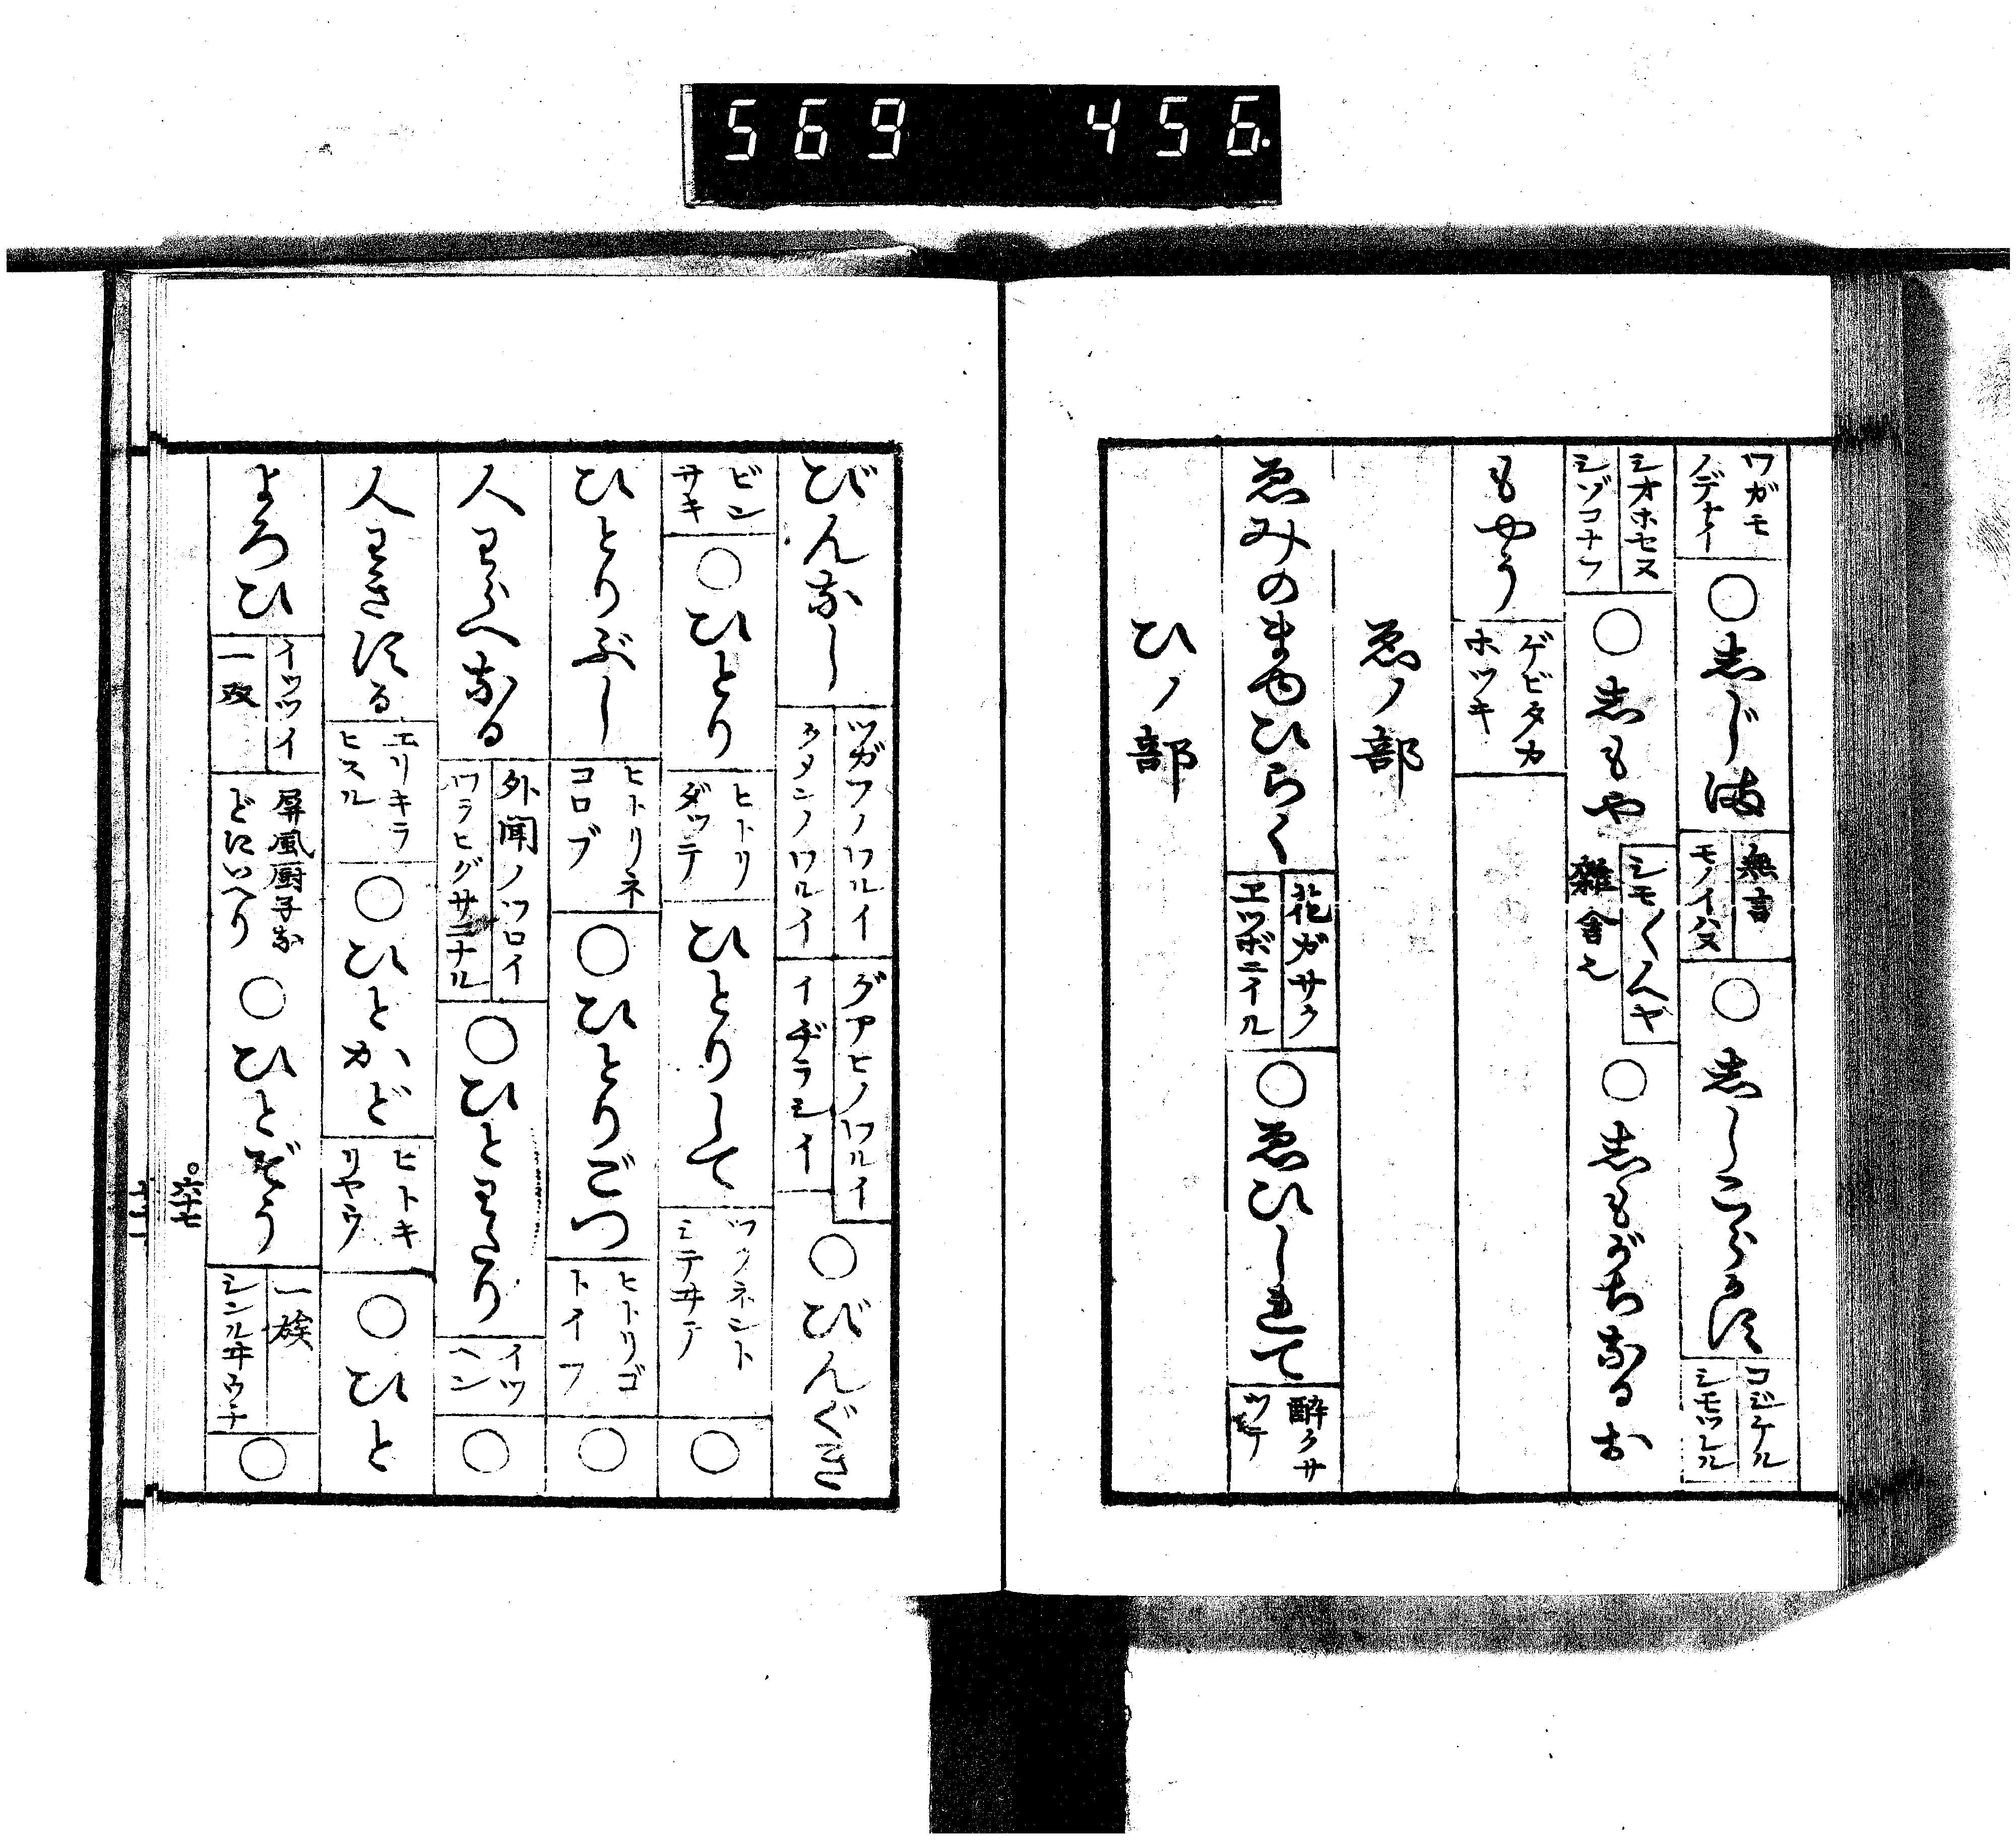 569 456.
ワガモ
ノデナイ
○志じま
無言
モノイハヌ
○志しこらかす
コジケル
シモツレル
シオホセヌ
シゾコナフ
○志もや
シモ〱ヘヤ
雑舎也
○志もがちなるお
もやう
ゲビタカ
ホツキ
ゑノ部
ゑみのまゆひらく
花ガサク
エツボニイル
○ゑひしれて
酔クサ
ツテ
ひノ部
びんなし
ツガフノワルイ
カタンノワルイ
グアヒノワルイ
イヂラシイ
○びんぐき
ビン
サキ
○ひとり
ヒトリ
ダツテ
ひとりして
ツクネント
シテヰテ
○
ひとりぶし
ヒトリネ
コロブ
○ひとりごつ
ヒトリゴ
トイフ
○
人わらへなる
外聞ノワロイ
ワラヒグサニナル
○ひとわたり
イツ
ヘン
○
人わきする
エリキラ
ヒスル
○ひとかど
ヒトキ
リヤウ
○ひと
よろひ
イツツイ
一双
屏風厨子な
どにいへり
○ひとぞう
一族
シンルヰウチ
○
六十七